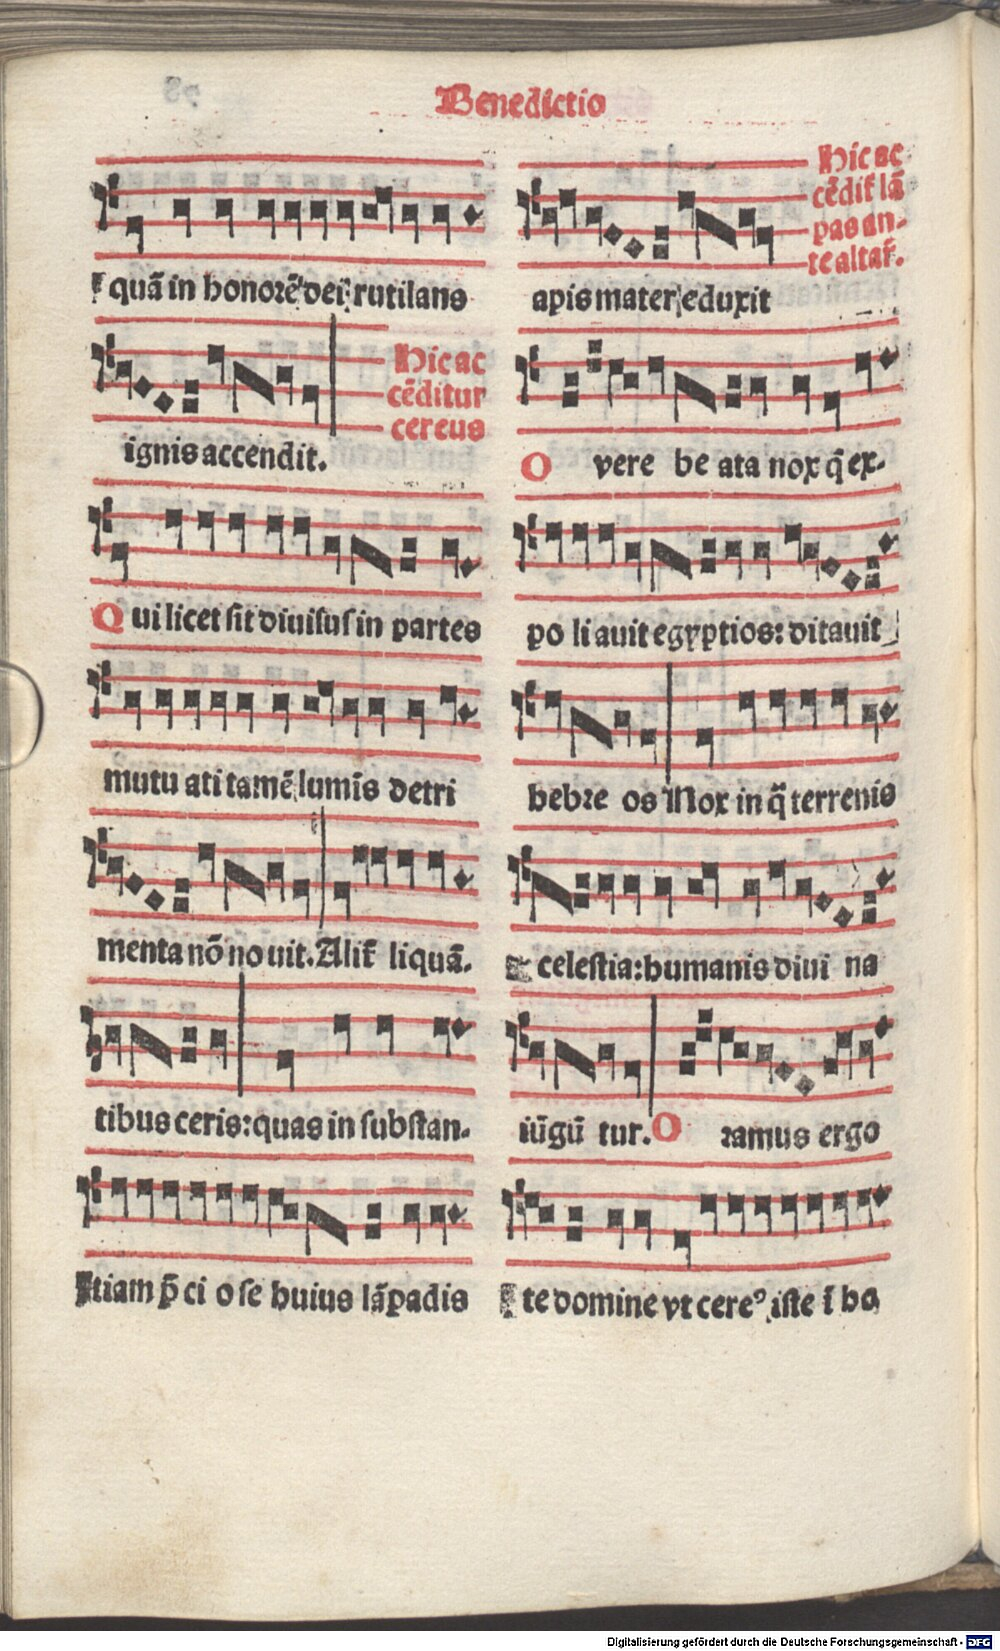 Benedictio
quā in honorē dei rutilans
ignis accendit.
Hic ac
cēditur
cereus
Qui licet sit diuisus in partes
mutu ati tamē lumīs detri
menta nō no uit. Alit̄ liquā-
tibus ceris: quas in substan-
tiam p̄ ci o se huius lāpadis
apis mater eduxit
Hic ac
cēdit̄ lā
pas an-
te altar̄.
O vere be ata nox q̄ ex-
po li auit egyptios: ditauit
hebre os Nox in q̄ terrenis
celestia: humanis diui na
iūgū tur. O ramus ergo
te domine vt cereꝰ iste ī ho
Digitalisierung gefördert durch die Deutsche Forschungsgemeinschaft - DFG